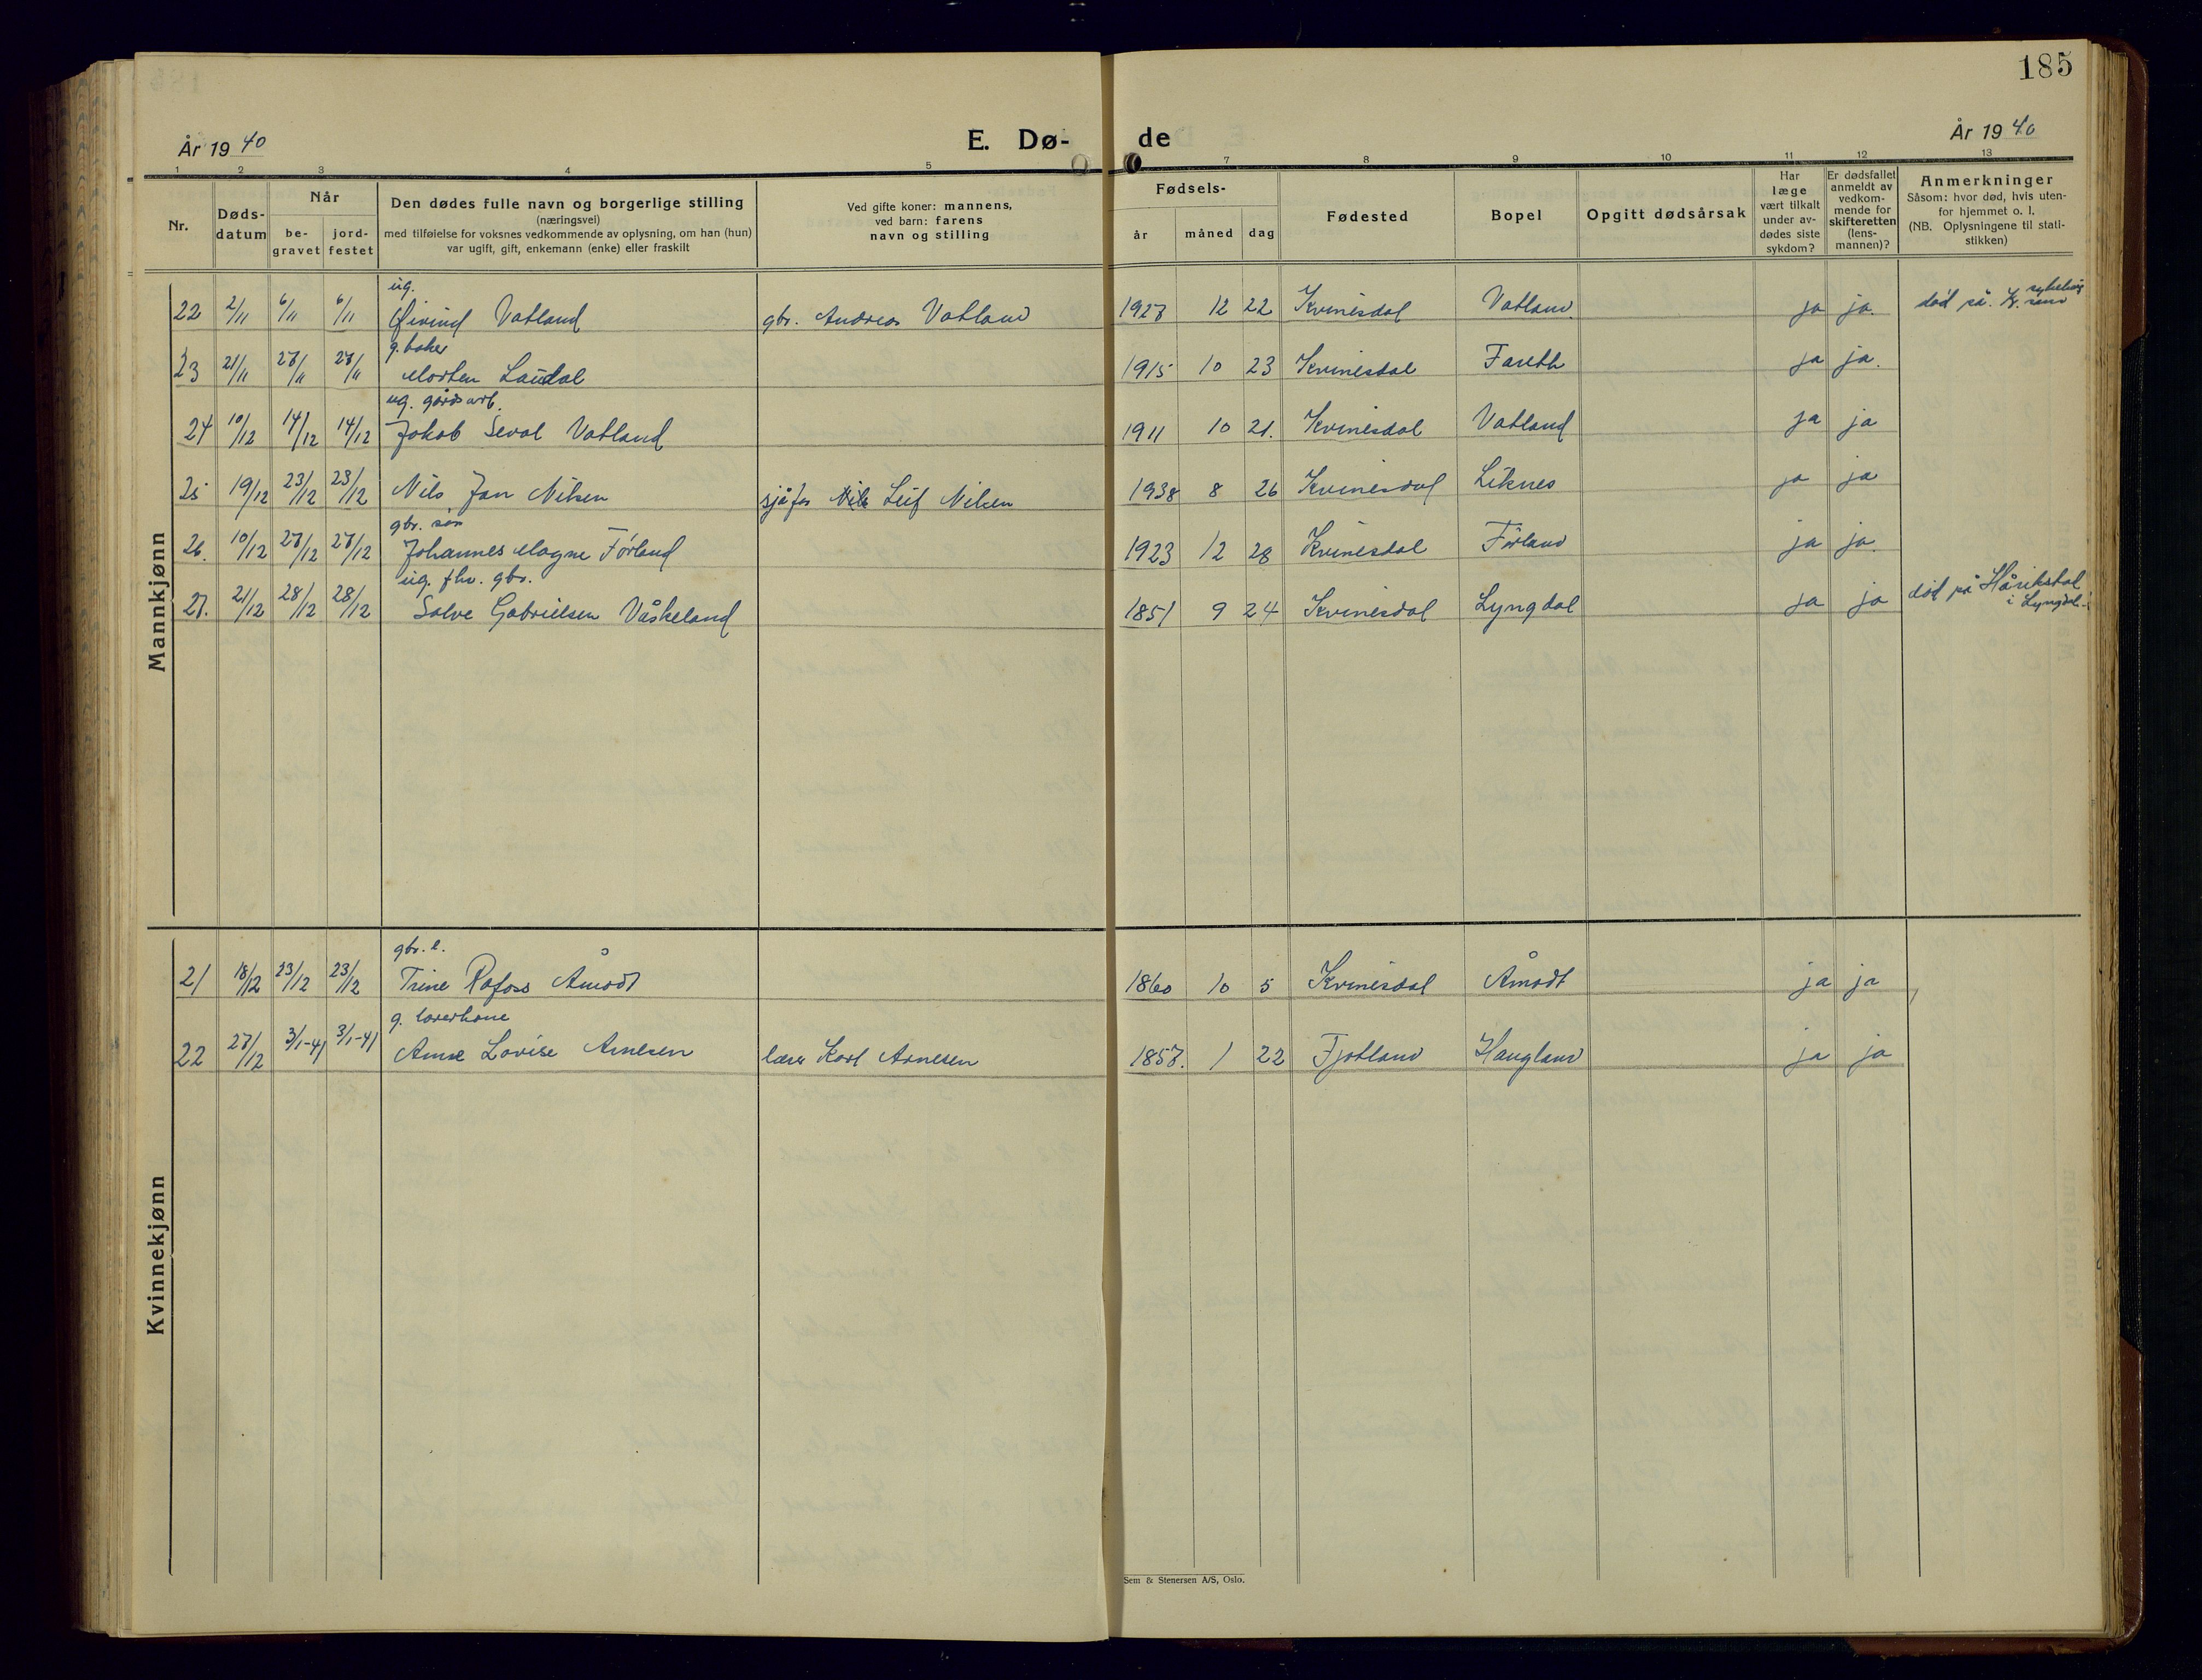 185
År 1940
E. Dø-
de
År 1940
1 2 3 4 5 7 8 9 10 11 12 13
Nr.
Døds-
datum
Når
be-
gravet
jord-
festet
Den dødes fulle navn og borgerlige stilling
(næringsvei)
med tilføielse for voksnes vedkommende av oplysning, om han (hun)
var ugift, gift, enkemann (enke) eller fraskilt
Ved gifte koner: mannens,
ved barn: farens
navn og stilling
Fødsels-
år måned dag
Fødested
Bopel
Opgitt dødsårsak
Har
læge
vært tilkalt
under av-
dødes siste
sykdom?
Er dødsfallet
anmeldt av
vedkom-
mende for
skifteretten
(lens-
mannen)?
Anmerkninger
Såsom: hvor død, hvis uten-
for hjemmet o. l.
(NB. Oplysningene til stati-
stikken)
Mannkjønn
ug.
22 2/11 6/11 6/11 Øivind Vatland gbr. Andreas Vatland 1927 12 22 Kvinesdal Vatland. ja ja. død på
g. baker
23 21/11 27/11 27/11 Morten Laudal 1915 10 23 Kvinesdal Fareth ja ja.
ug. gårdsarb.
24 10/12 14/12 14/12 Jakob Seval Vatland 1911 10 21. Kvinesdal Vatland ja ja
25 19/12 23/12 23/12 Nils Jan Nilsen sjåfør Leif Nilsen 1938 8 26 Kvinesdal Liknes ja ja
gbr. søn
26. 10/12 27/12 27/12 Johannes Magne Førland 1923 12 28 Kvinesdal Førland ja ja.
ug. fhv. gbr.
27. 21/12 28/12 28/12 Salve Gabrielsen Våskeland 1851 9 24 Kvinesdal Lyngdal ja ja død på
i Lyngdal
Kvinnekjønn
gbr. e.
21 18/12 23/12 23/12 Trine Rafoss Åmodt 1860 10 5 Kvinesdal Åmodt ja ja
g. lærerkone
22 27/12 3/1-41 3/1-41 Anne Lovise Arnesen lærer Karl Arnesen 1857. 1 22 Fjotland Haugland ja ja
Sem & Stenersen A/S, Oslo.